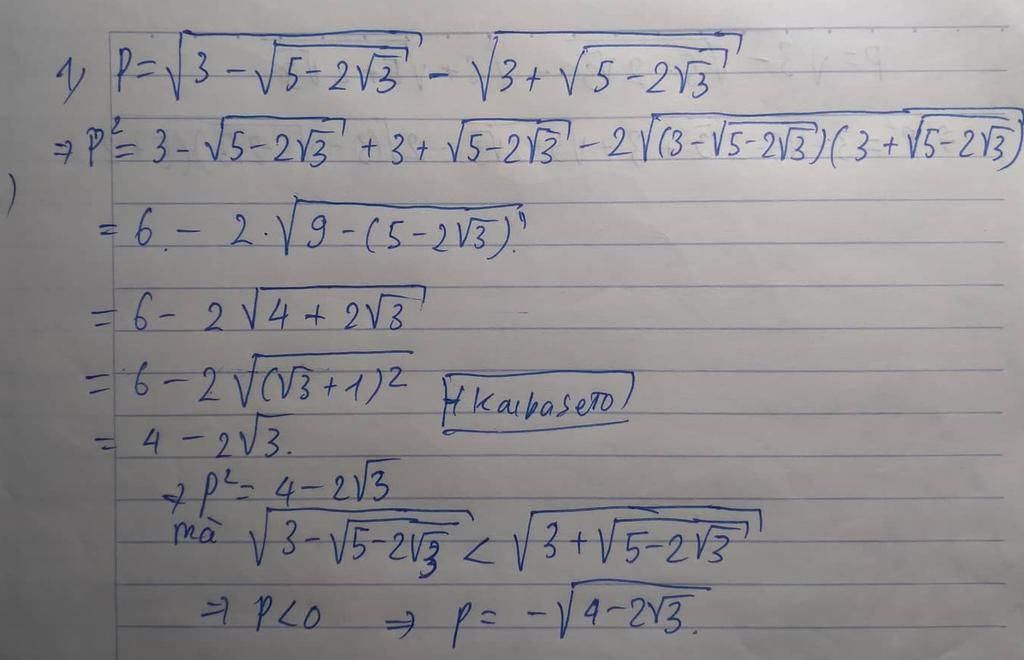 1, P = √(3 - √(5 - 2√3)) - √(3 + √(5 - 2√3))
⇒ P² = 3 - √(5 - 2√3) + 3 + √(5 - 2√3) - 2√((3 - √(5 - 2√3))(3 + √(5 - 2√3))
)
= 6 - 2 . √(9 - (5 - 2√3))
= 6 - 2√(4 + 2√3)
= 6 - 2√((√3 + 1)²)
HKaibaseto
= 4 - 2√3.
⇒ P² = 4 - 2√3
mà √(3 - √(5 - 2√3)) < √(3 + √(5 - 2√3))
⇒ P < 0 ⇒ P = -√(4 - 2√3).